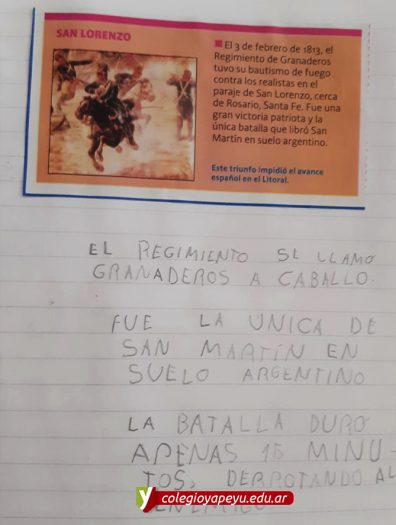 SAN LORENZO
El 3 de febrero de 1813, el
Regimiento de Granaderos
tuvo su bautismo de fuego
contra los realistas en el
paraje de San Lorenzo, cerca
de Rosario, Santa Fe. Fue una
gran victoria patriota y la
única batalla que libró San
Martín en suelo argentino.
Este triunfo impidió el avance
español en el Litoral.
EL REGIMIENTO SE LLAMO
GRANADEROS A CABALLO.
FUE LA UNICA DE
SAN MARTÍN EN
SUELO ARGENTINO
LA BATALLA DURO
APENAS 15 MINU-
TOS, DERROTANDO AL
colegioyapeyu.edu.ar